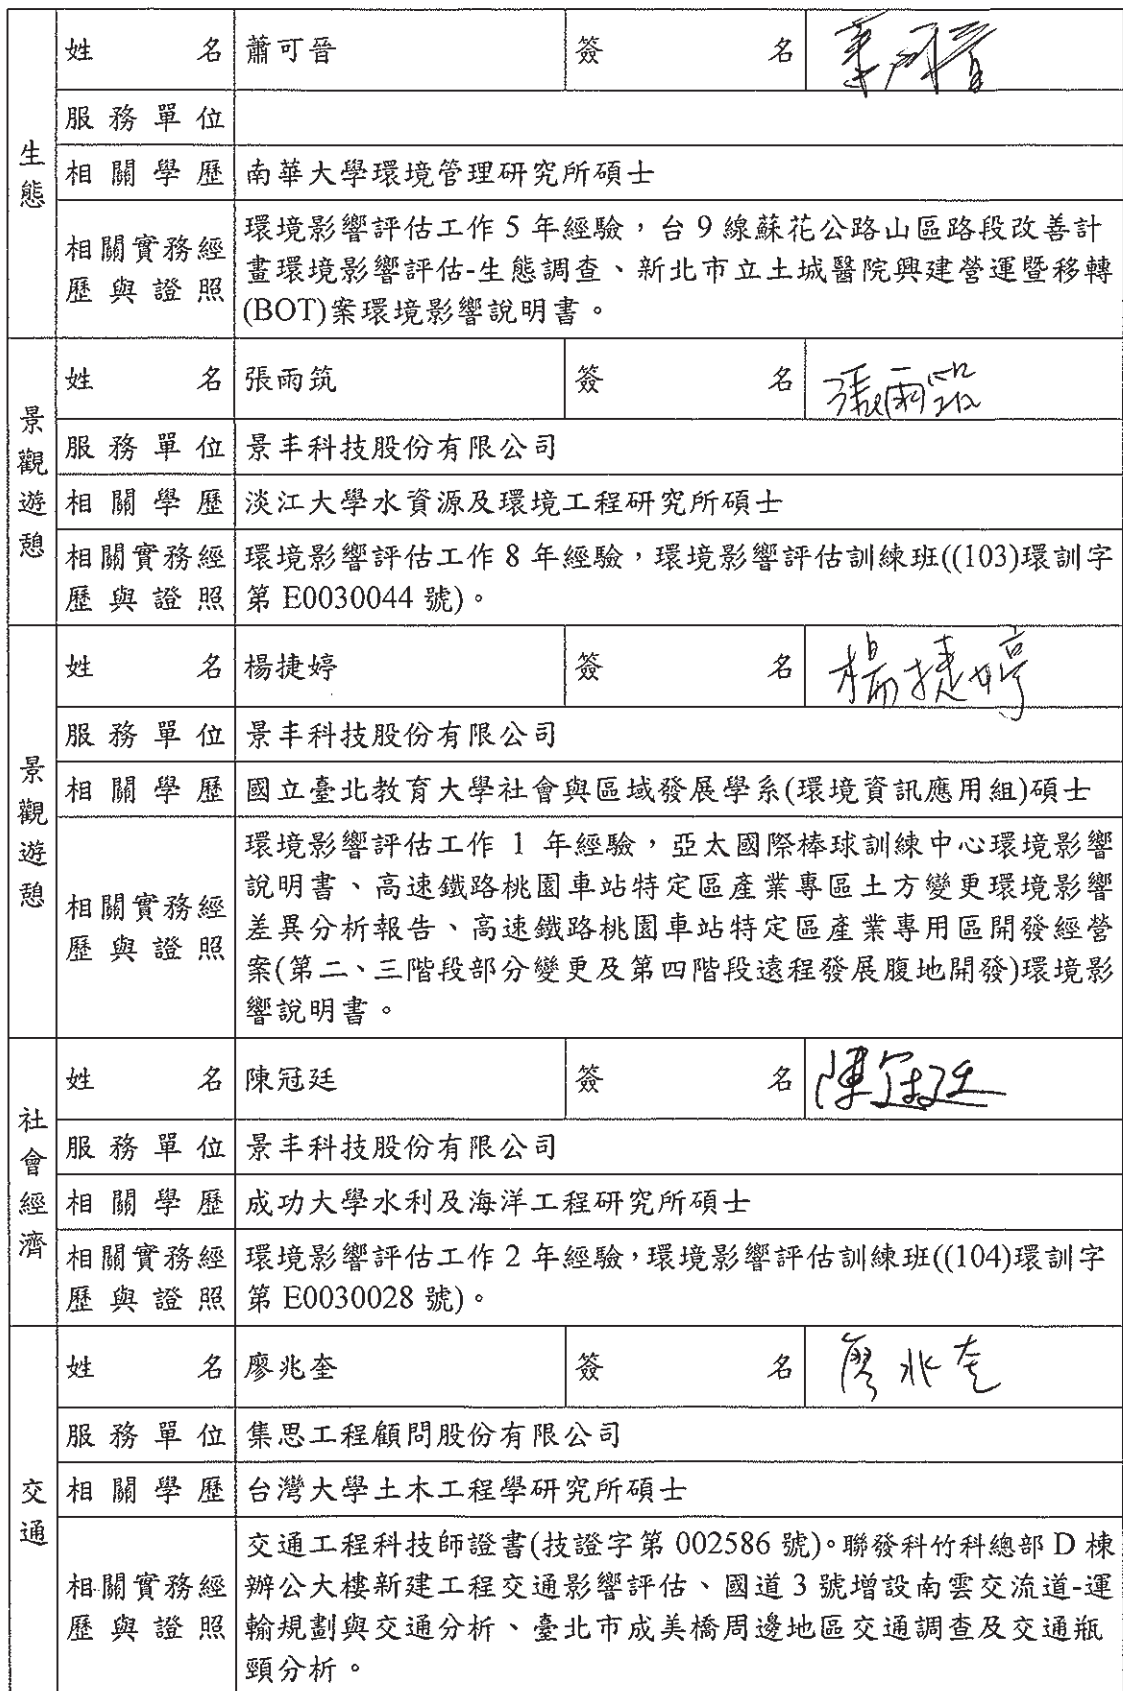 生態
姓名 蕭可晉 簽名 蕭可晉
服務單位
相關學歷 南華大學環境管理研究所碩士
相關實務經歷與證照
環境影響評估工作 5 年經驗，台 9 線蘇花公路山區路段改善計
畫環境影響評估-生態調查、新北市立土城醫院興建營運暨移轉
(BOT)案環境影響說明書。
景觀遊憩
姓名 張雨筑 簽名 張雨筑
服務單位 景丰科技股份有限公司
相關學歷 淡江大學水資源及環境工程研究所碩士
相關實務經歷與證照
環境影響評估工作 8 年經驗，環境影響評估訓練班((103)環訓字
第 E0030044 號)。
景觀遊憩
姓名 楊捷婷 簽名 楊捷婷
服務單位 景丰科技股份有限公司
相關學歷 國立臺北教育大學社會與區域發展學系(環境資訊應用組)碩士
相關實務經歷與證照
環境影響評估工作 1 年經驗，亞太國際棒球訓練中心環境影響
說明書、高速鐵路桃園車站特定區產業專區土方變更環境影響
差異分析報告、高速鐵路桃園車站特定區產業專用區開發經營
案(第二、三階段部分變更及第四階段遠程發展腹地開發)環境影
響說明書。
社會經濟
姓名 陳冠廷 簽名 陳冠廷
服務單位 景丰科技股份有限公司
相關學歷 成功大學水利及海洋工程研究所碩士
相關實務經歷與證照
環境影響評估工作 2 年經驗，環境影響評估訓練班((104)環訓字
第 E0030028 號)。
交通
姓名 廖兆奎 簽名 廖兆奎
服務單位 集思工程顧問股份有限公司
相關學歷 台灣大學土木工程學研究所碩士
相關實務經歷與證照
交通工程科技師證書(技證字第 002586 號)。聯發科竹科總部 D 棟
辦公大樓新建工程交通影響評估、國道 3 號增設南雲交流道-運
輸規劃與交通分析、臺北市成美橋周邊地區交通調查及交通瓶
頸分析。